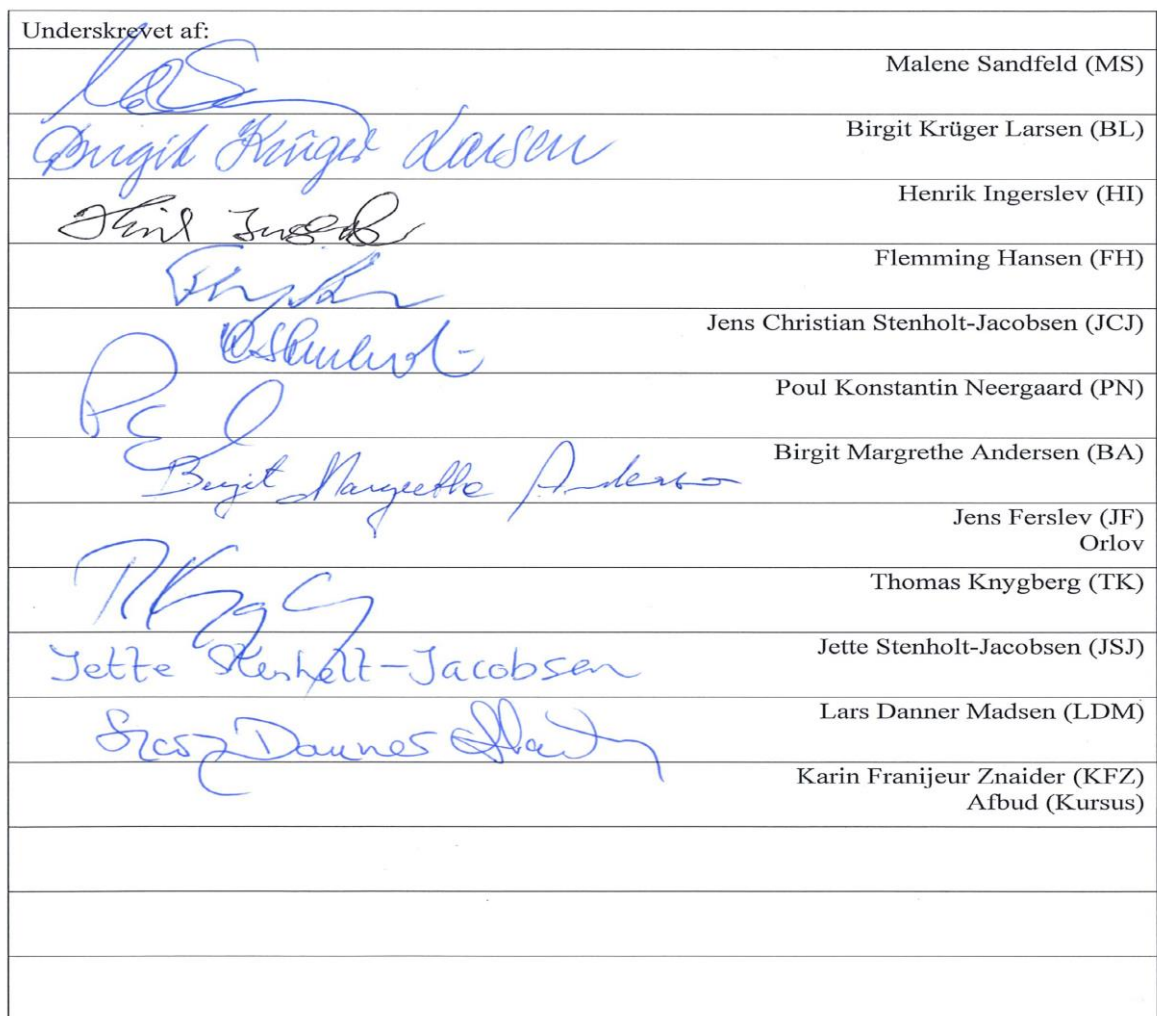 Underskrevet af:
Malene Sandfeld (MS)
Birgit Krüger Larsen
Birgit Krüger Larsen (BL)
Henrik Ingerslev (HI)
Flemming Hansen (FH)
Jens Christian Stenholt-Jacobsen (JCJ)
Poul Konstantin Neergaard (PN)
Birgit Margrethe Andersen (BA)
Birgit Margrethe Andersen
Jens Ferslev (JF)
Orlov
Thomas Knygberg (TK)
Jette Stenholt-Jacobsen (JSJ)
Jette Stenholt-Jacobsen
Lars Danner Madsen (LDM)
Karin Franijeur Znaider (KFZ)
Afbud (Kursus)